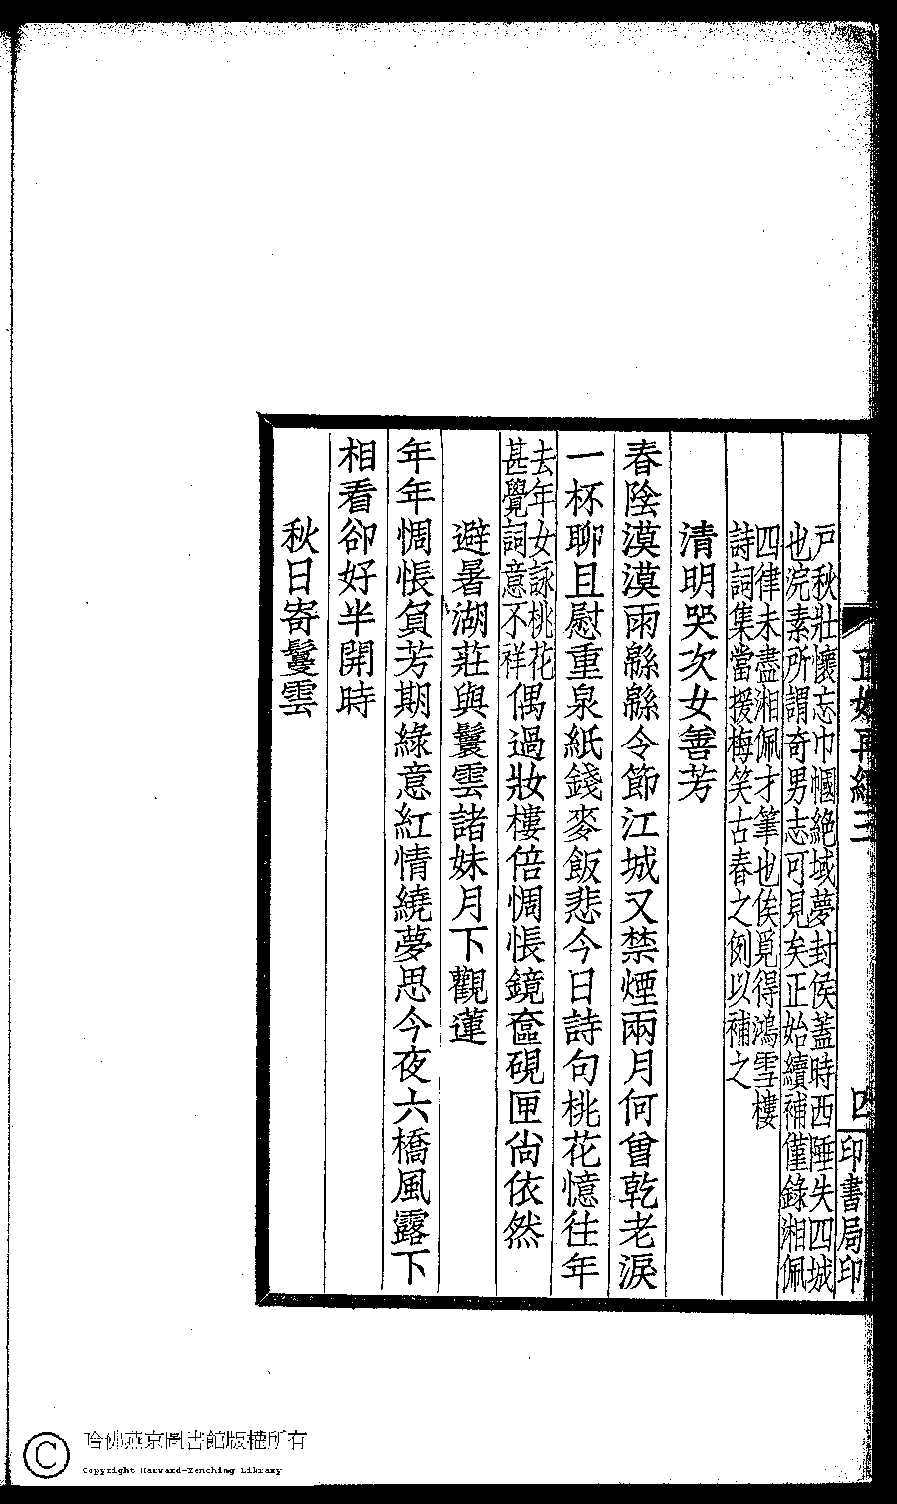 正始再續三
四
印書局印
戶秋壯懷忘巾幗絶域夢封侯蓋時西陲失四城
也浣素所謂奇男志可見矣正始續補僅錄湘佩
四律未盡湘佩才筆也俟覓得鴻雪樓
詩詞集當援梅笑古春之例以補之
清明哭次女善芳
春陰漠漠雨緜緜令節江城又禁煙兩月何曾乾老淚
一杯聊且慰重泉紙錢麥飯悲今日詩句桃花憶往年
去年女詠桃花
甚覺詞意不祥
偶過妝樓倍惆悵鏡奩硯匣尙依然
避暑湖莊與鬘雲諸妹月下觀蓮
年年惆悵負芳期綠意紅情繞夢思今夜六橋風露下
相看卻好半開時
秋日寄鬘雲
哈佛燕京圖書館版權所有
Copyright Harvard-Yenching Library